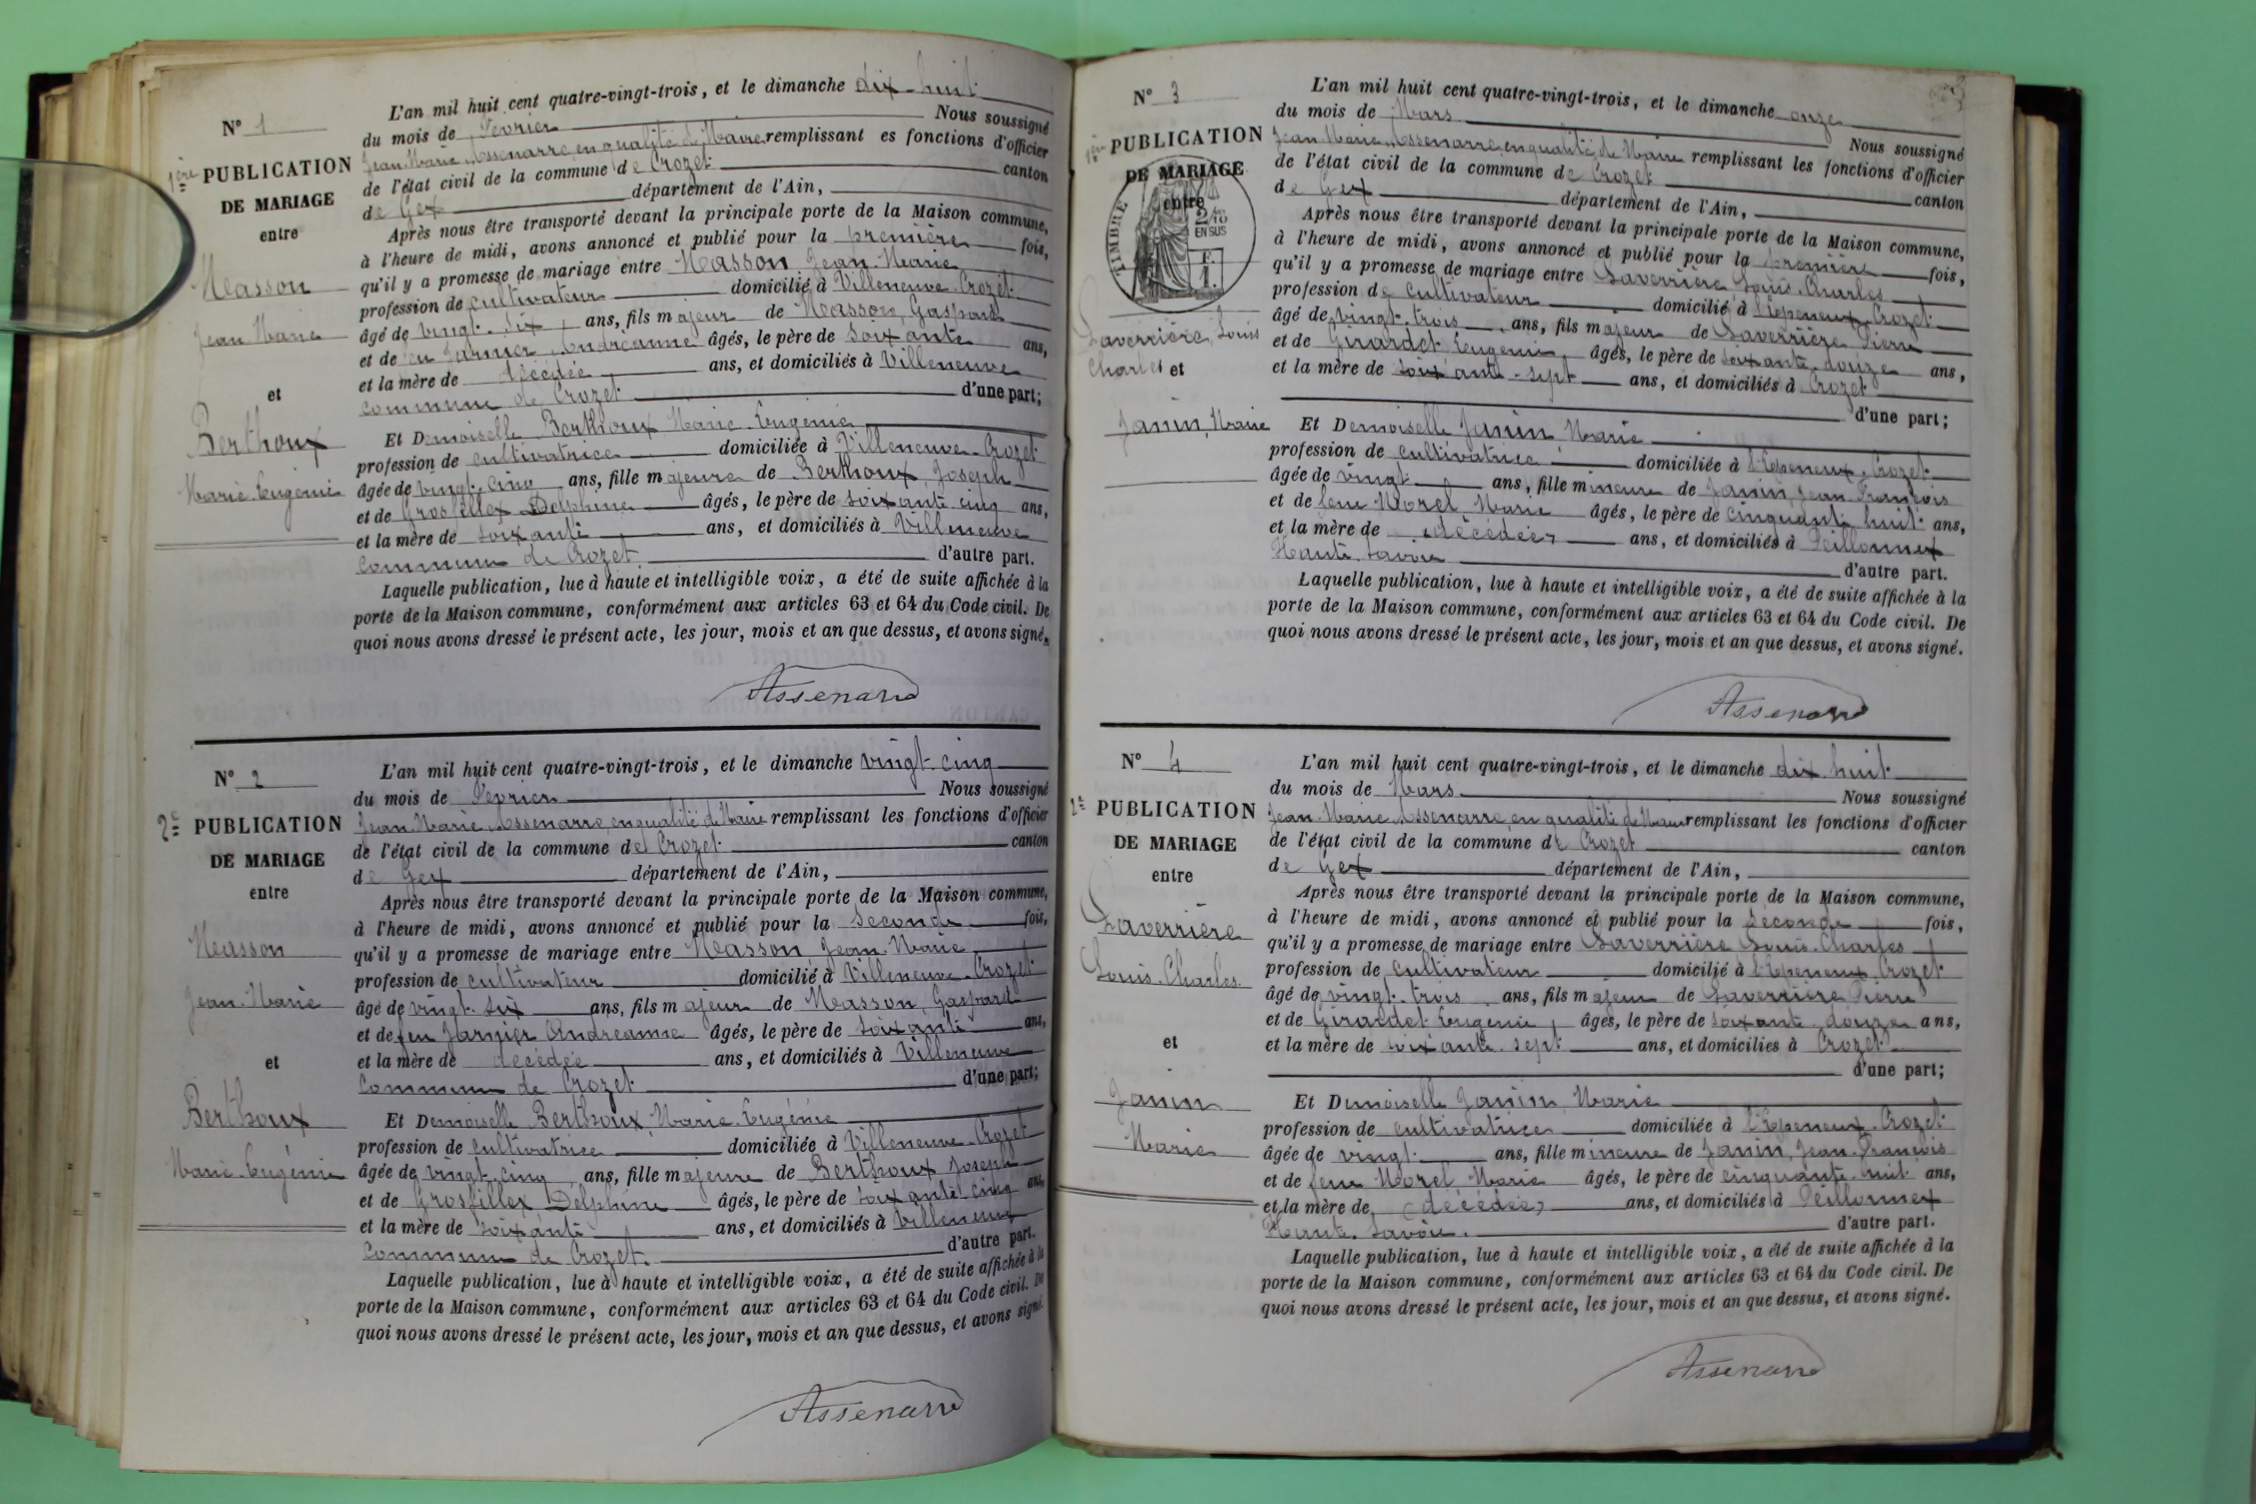 N° 1
1ère PUBLICATION
DE MARIAGE
entre
Masson
Jean Marie
et
Berthoux
Marie Eugénie
L'an mil huit cent quatre-vingt-trois, et le dimanche dix-huit
du mois de Février Nous soussigné
Jean Marie Assenarre, en qualité de Maire remplissant es fonctions d'officier
de l'état civil de la commune de Crozet canton
de Gex département de l'Ain,
Après nous être transporté devant la principale porte de la Maison commune,
à l'heure de midi, avons annoncé et publié pour la première fois,
qu'il y a promesse de mariage entre Masson Jean Marie
profession de cultivateur domicilié à Villeneuve-Crozet
âgé de vingt-six ans, fils majeur de Masson, Gaspard
et de feu Jarnier Andréanne âgés, le père de soixante ans,
et la mère de décédée ans, et domiciliés à Villeneuve
commune de Crozet d'une part;
Et Demoiselle Berthoux Marie Eugénie
profession de cultivatrice domiciliée à Villeneuve-Crozet
âgée de vingt-cinq ans, fille majeure de Berthoux, Joseph
et de Grosfillex Delphine âgés, le père de soixante cinq ans,
et la mère de soixante ans, et domiciliés à Villeneuve
commune de Crozet. d'autre part.
Laquelle publication, lue à haute et intelligible voix, a été de suite affichée à la
porte de la Maison commune, conformément aux articles 63 et 64 du Code civil. De
quoi nous avons dressé le présent acte, les jour, mois et an que dessus, et avons signé.
Assenarre
N° 2
2e PUBLICATION
DE MARIAGE
entre
Masson
Jean-Marie
et
Berthoux
Marie-Eugénie
L'an mil huit cent quatre-vingt-trois, et le dimanche vingt-cinq
du mois de Février Nous soussigné
Jean Marie Assenarre, en qualité de Maire remplissant les fonctions d'officier
de l'état civil de la commune de Crozet canton
de Gex département de l'Ain,
Après nous être transporté devant la principale porte de la Maison commune,
à l'heure de midi, avons annoncé et publié pour la seconde fois,
qu'il y a promesse de mariage entre Masson Jean-Marie
profession de cultivateur domicilié à Villeneuve-Crozet
âgé de vingt-six ans, fils majeur de Masson, Gaspard
et de feu Jarnier Andréanne âgés, le père de soixante ans,
et la mère de décédée ans, et domiciliés à Villeneuve
commune de Crozet d'une part;
Et Demoiselle Berthoux, Marie-Eugénie
profession de cultivatrice domiciliée à Villeneuve-Crozet
âgée de vingt-cinq ans, fille majeure de Berthoux Joseph
et de Grosfillex Delphine âgés, le père de soixante cinq ans,
et la mère de soixante ans, et domiciliés à Villeneuve
commune de Crozet. d'autre part.
Laquelle publication, lue à haute et intelligible voix, a été de suite affichée à la
porte de la Maison commune, conformément aux articles 63 et 64 du Code civil. De
quoi nous avons dressé le présent acte, les jour, mois et an que dessus, et avons signé.
Assenarre
N° 3
1ère PUBLICATION
DE MARIAGE
entre
TIMBRE
2/10
EN SUS
F.
1.
Laverrière, Louis
Charles et
Janin, Marie
L'an mil huit cent quatre-vingt-trois, et le dimanche onze
du mois de Mars Nous soussigné
Jean Marie Assenarre, en qualité de Maire remplissant les fonctions d'officier
de l'état civil de la commune de Crozet canton
de Gex département de l'Ain,
Après nous être transporté devant la principale porte de la Maison commune,
à l'heure de midi, avons annoncé et publié pour la première fois,
qu'il y a promesse de mariage entre Laverrière, Louis-Charles
profession de cultivateur domicilié à l'Epeneux-Crozet
âgé de vingt-trois ans, fils majeur de Laverrière Pierre
et de Girardet Eugénie, âgés, le père de soixante-douze ans,
et la mère de soixante-sept ans, et domiciliés à Crozet
d'une part;
Et Demoiselle Janin Marie
profession de cultivatrice domiciliée à l'Epeneux-Crozet
âgée de vingt ans, fille mineure de Janin, Jean François
et de feue Morel Marie âgés, le père de cinquante huit ans,
et la mère de (décédée) ans, et domiciliés à Peillonnex
Haute-Savoie d'autre part.
Laquelle publication, lue à haute et intelligible voix, a été de suite affichée à la
porte de la Maison commune, conformément aux articles 63 et 64 du Code civil. De
quoi nous avons dressé le présent acte, les jour, mois et an que dessus, et avons signé.
Assenarre
N° 4
2e PUBLICATION
DE MARIAGE
entre
Laverrière
Louis-Charles
et
Janin
Marie
L'an mil huit cent quatre-vingt-trois, et le dimanche dix-huit
du mois de Mars Nous soussigné
Jean-Marie Assenarre en qualité de Maire remplissant les fonctions d'officier
de l'état civil de la commune de Crozet canton
de Gex département de l'Ain,
Après nous être transporté devant la principale porte de la Maison commune,
à l'heure de midi, avons annoncé et publié pour la seconde fois,
qu'il y a promesse de mariage entre Laverrière Louis-Charles
profession de cultivateur domicilié à l'Epeneux Crozet
âgé de vingt-trois ans, fils majeur de Laverrière Pierre
et de Girardet Eugénie, âgés, le père de soixante-douze ans,
et la mère de soixante-sept ans, et domiciliés à Crozet
d'une part;
Et Demoiselle Janin, Marie
profession de cultivatrice domiciliée à l'Epeneux-Crozet
âgée de vingt ans, fille mineure de Janin, Jean-François
et de feue Morel Marie âgés, le père de cinquante-huit ans,
et la mère de (décédée) ans, et domiciliés à Peillonnex
Haute-Savoie. d'autre part.
Laquelle publication, lue à haute et intelligible voix, a été de suite affichée à la
porte de la Maison commune, conformément aux articles 63 et 64 du Code civil. De
quoi nous avons dressé le présent acte, les jour, mois et an que dessus, et avons signé.
Assenarre